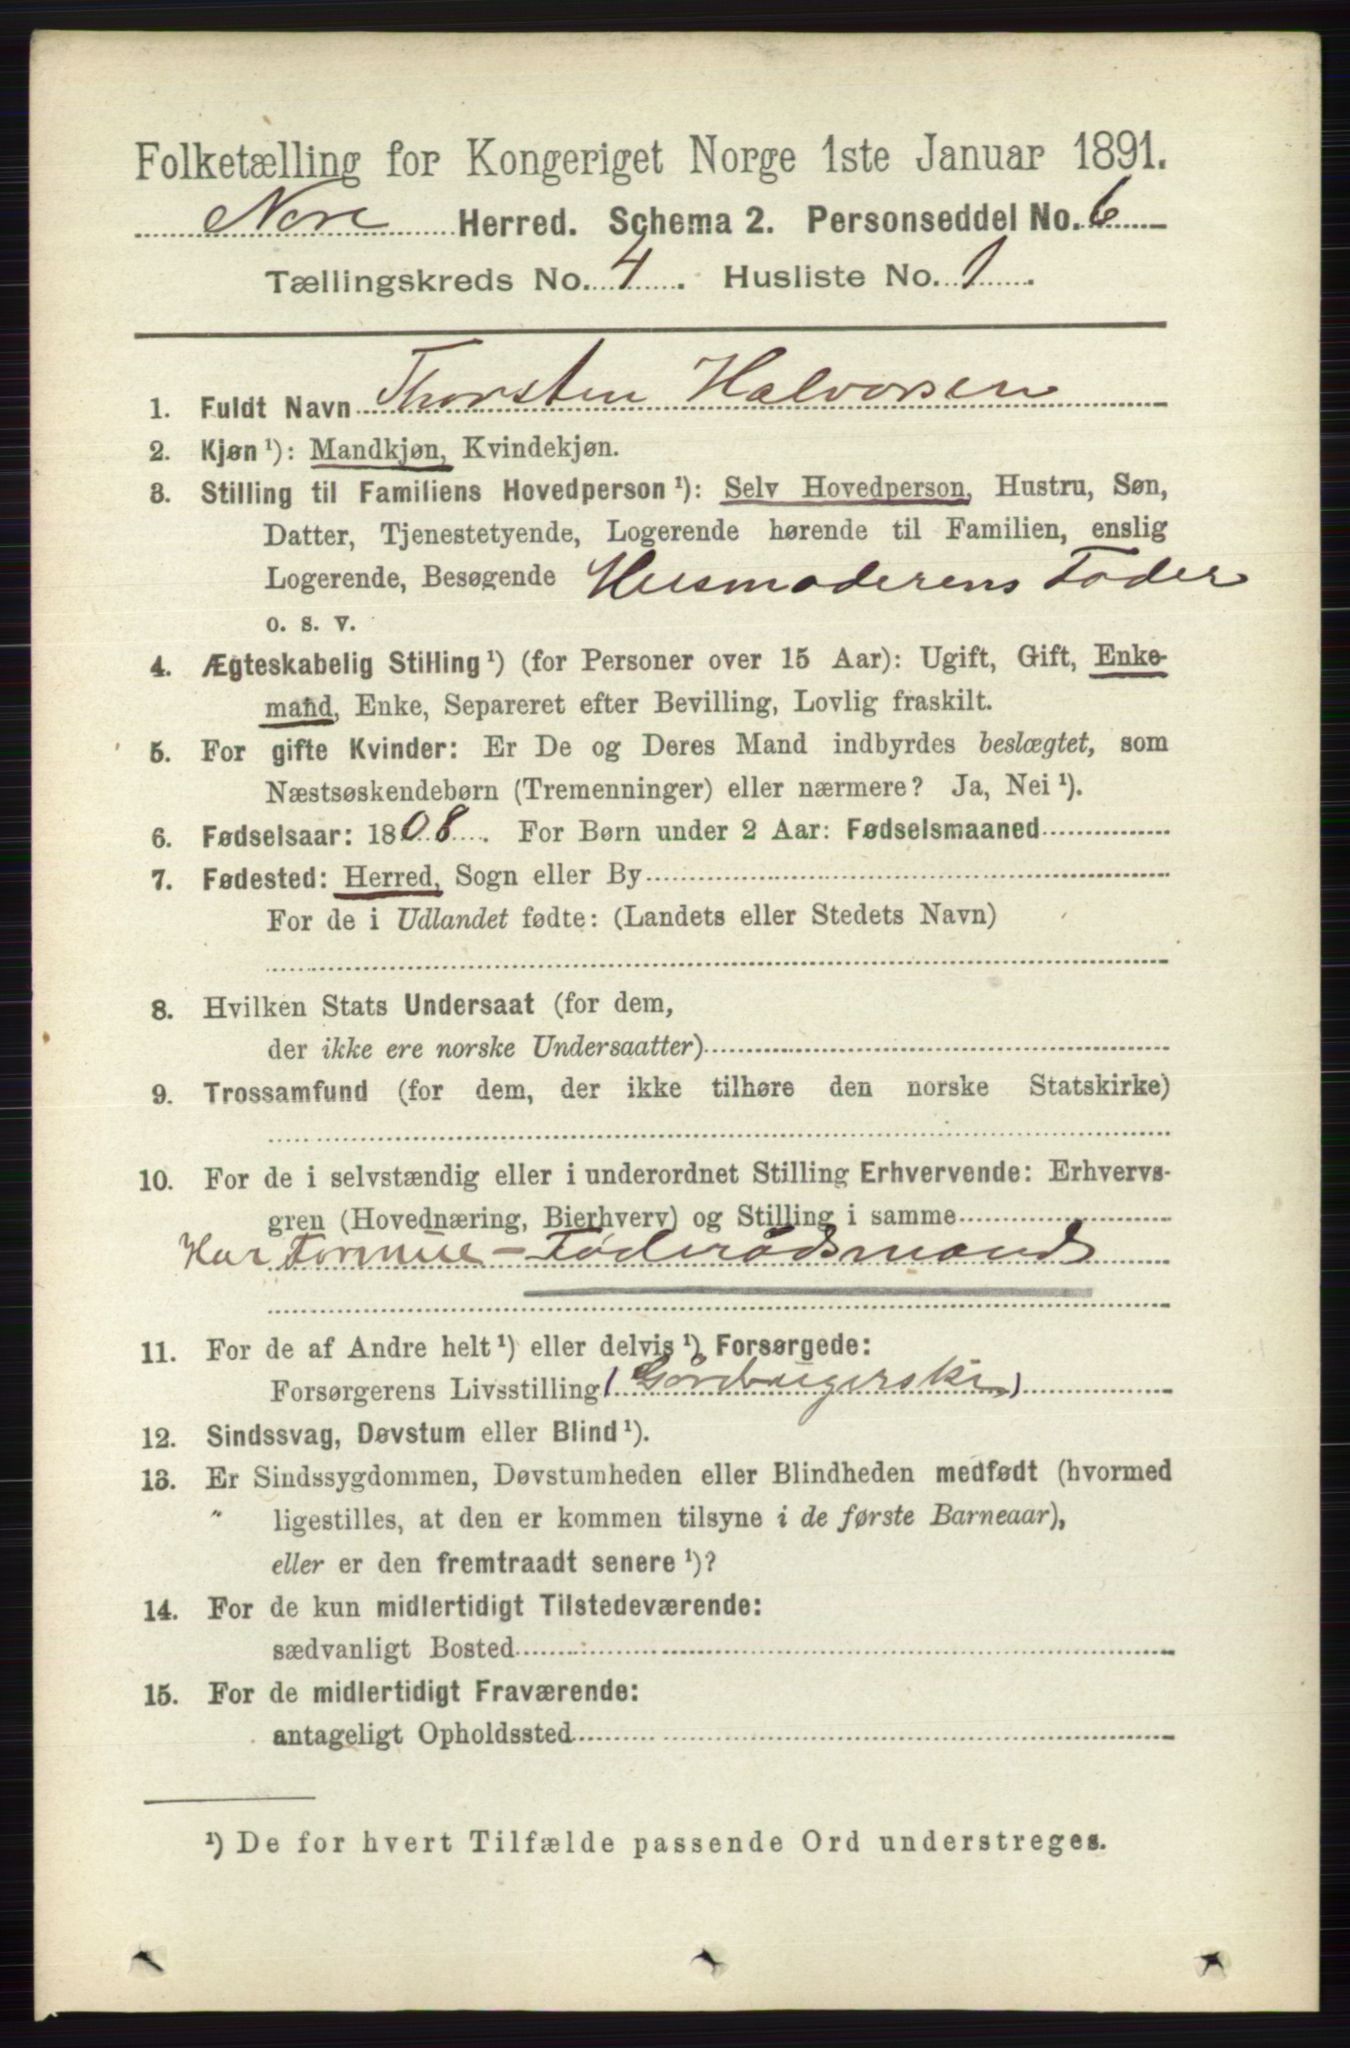 Folketælling for Kongeriget Norge 1ste Januar 1891.
Nore Herred. Schema 2. Personseddel No. 6
Tællingskreds No. 4. Husliste No. 1.
1. Fuldt Navn Thorsten Halvorsen
2. Kjøn ¹): Mandkjøn, Kvindekjøn.
3. Stilling til Familiens Hovedperson ¹): Selv Hovedperson, Hustru, Søn,
Datter, Tjenestetyende, Logerende hørende til Familien, enslig
Logerende, Besøgende Husmoderens Fader
o. s. v.
4. Ægteskabelig Stilling ¹) (for Personer over 15 Aar): Ugift, Gift, Enke-
mand, Enke, Separeret efter Bevilling, Lovlig fraskilt.
5. For gifte Kvinder: Er De og Deres Mand indbyrdes beslægtet, som
Næstsøskendebørn (Tremenninger) eller nærmere? Ja, Nei ¹).
6. Fødselsaar: 1808. For Børn under 2 Aar: Fødselsmaaned
7. Fødested: Herred, Sogn eller By
For de i Udlandet fødte: (Landets eller Stedets Navn)
8. Hvilken Stats Undersaat (for dem,
der ikke ere norske Undersaatter)
9. Trossamfund (for dem, der ikke tilhøre den norske Statskirke)
10. For de i selvstændig eller i underordnet Stilling Erhvervende: Erhvervs-
gren (Hovednæring, Bierhverv) og Stilling i samme
Har Formue - Føderådsmand
11. For de af Andre helt ¹) eller delvis ¹) Forsørgede:
Forsørgerens Livsstilling (Gårdbrugerske)
12. Sindssvag, Døvstum eller Blind ¹).
13. Er Sindssygdommen, Døvstumheden eller Blindheden medfødt (hvormed
ligestilles, at den er kommen tilsyne i de første Barneaar),
eller er den fremtraadt senere ¹)?
14. For de kun midlertidigt Tilstedeværende:
sædvanligt Bosted
15. For de midlertidigt Fraværende:
antageligt Opholdssted
¹) De for hvert Tilfælde passende Ord understreges.